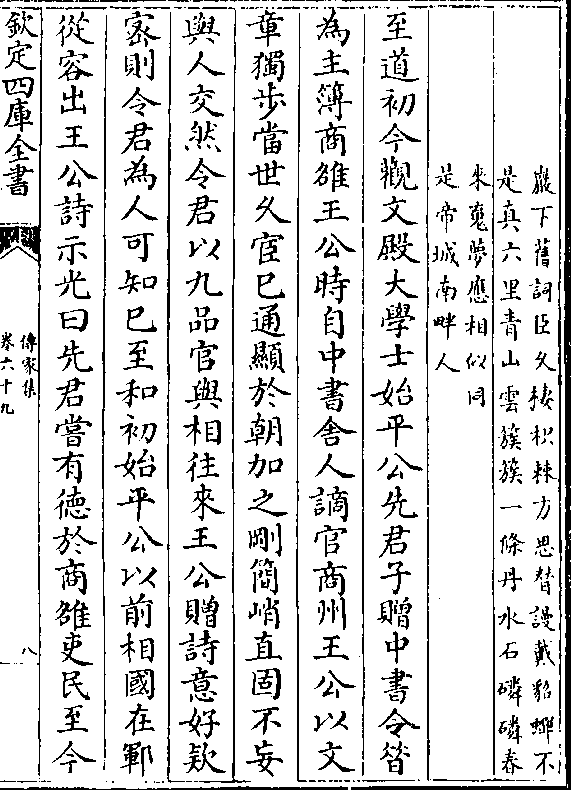 巖下舊詞臣久棲枳棘方思替謾戴貂蟬不
是真六里青山雲簇簇一條丹水石磷磷春
來䰟夢應相似同
是帝城南畔人
至道初今觀文殿大學士始平公先君子贈中書令晉
為主簿商雒王公時自中書舍人謫官商州王公以文
章獨步當世久宦已通顯於朝加之剛簡峭直固不妄
與人交然令君以九品官與相往來王公贈詩意好欵
宻則令君為人可知已至和初始平公以前相國在鄆
從容出王公詩示光曰先君嘗有德於商雒吏民至今
欽定四庫全書
傳家集
卷六十九
八